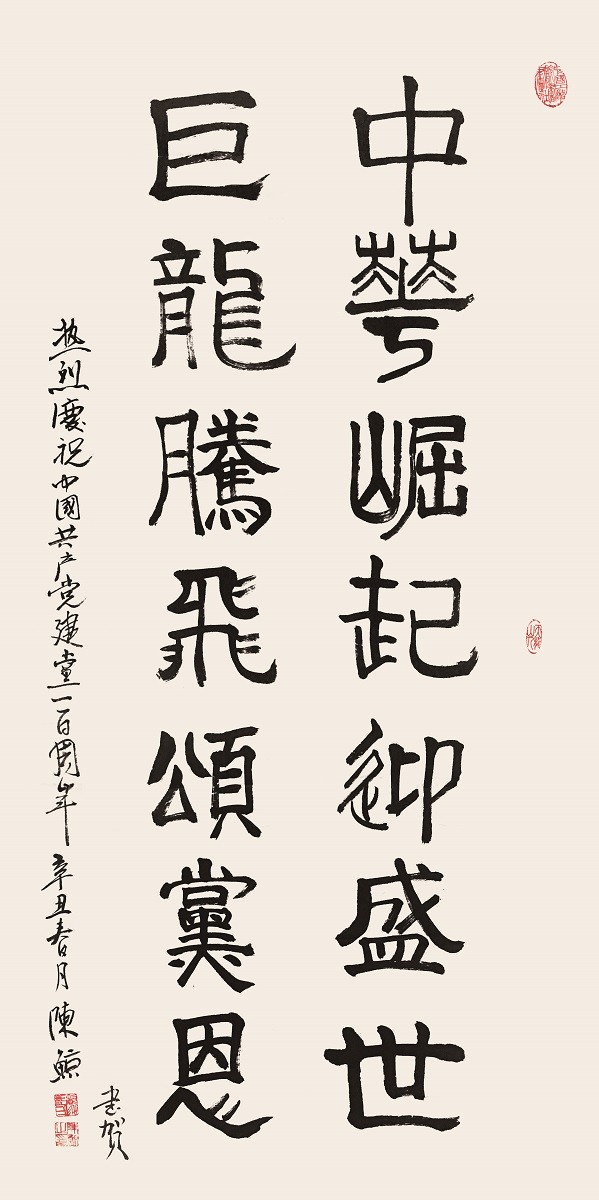 中華崛起迎盛世
巨龍騰飛頌黨恩
热烈慶祝中國共产党建黨一百周年 辛丑春月 陳鲸
书贺